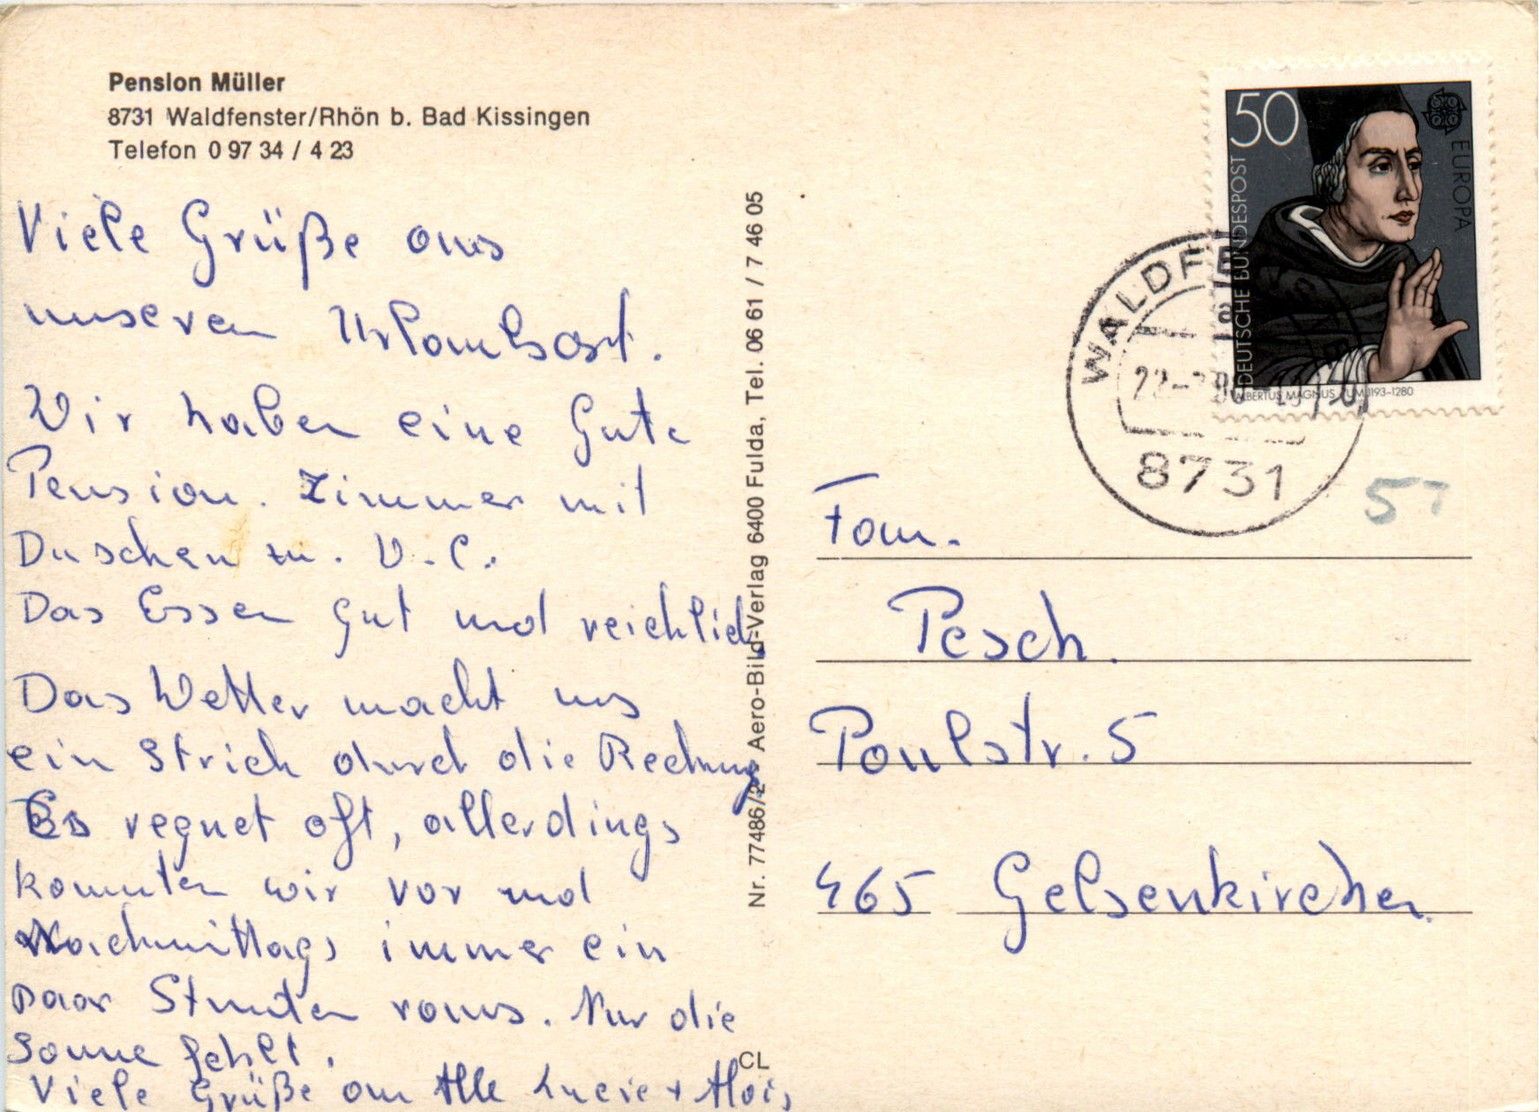 Pension Müller
8731 Waldfenster/Rhön b. Bad Kissingen
Telefon 0 97 34 / 4 23
Viele Grüße aus
unseren Urlaubsort.
Wir haben eine Gute
Pension. Zimmer mit
Duschen u. W.C.
Das Essen gut und reichlich
Das Wetter macht uns
ein Strich durch die Rechnung
Es regnet oft, allerdings
konnten wir vor und
Nachmittags immer ein
paar Stunden raus. Nur die
Sonne fehlt.
Viele Grüße an Alle Lucie + Alois
CL
Nr. 77486/2 Aero-Bild-Verlag 6400 Fulda, Tel. 06 61 / 7 46 05
50
EUROPA
DEUTSCHE BUNDESPOST
ALBERTUS MAGNUS UM 1193-1280
WALDFENSTER
8731
57
Fam.
Pesch.
Paulstr. 5
465 Gelsenkirchen